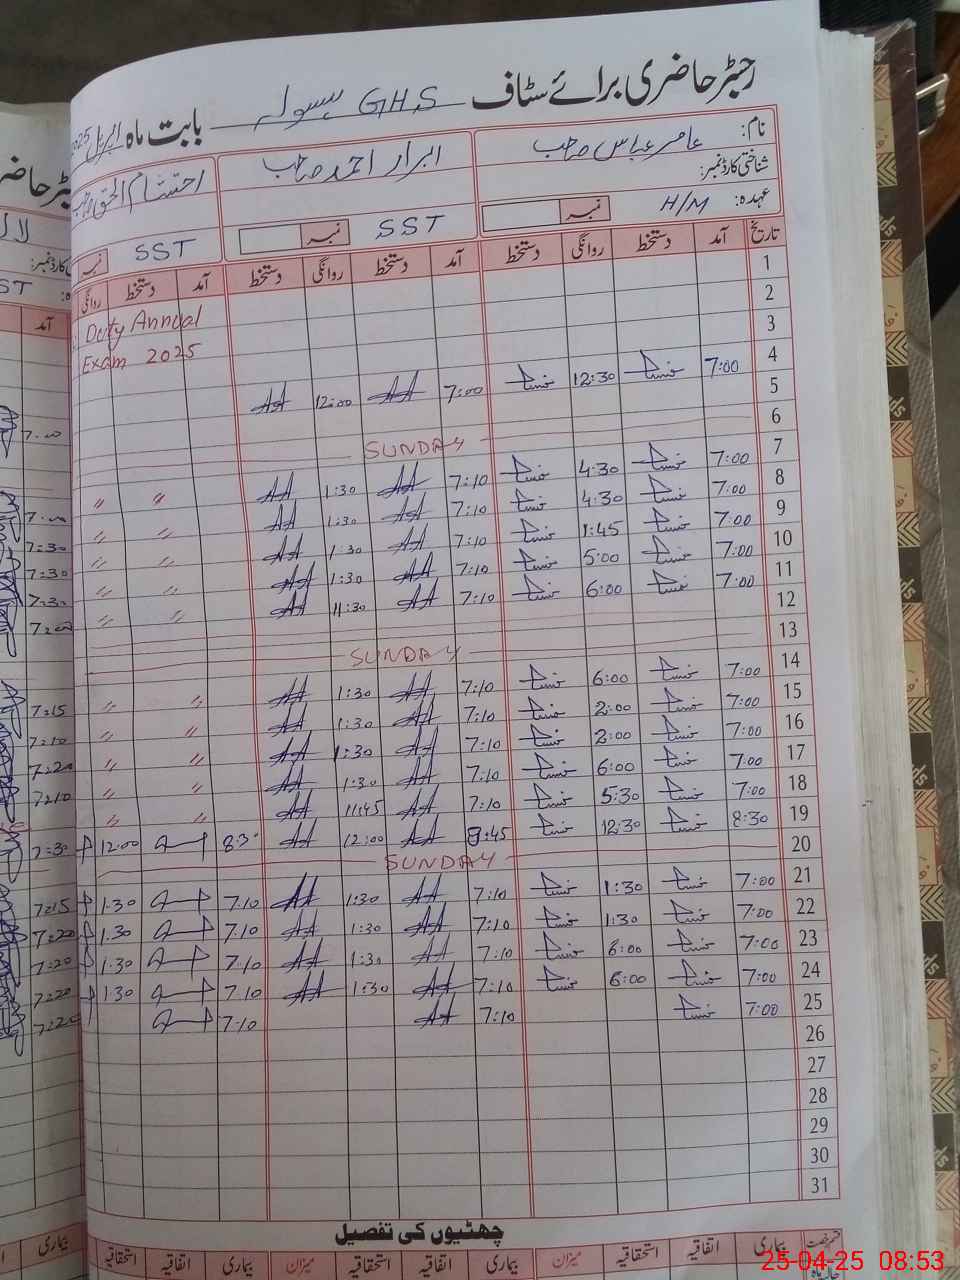 رجسٹر حاضری برائے سٹاف GHS ہسولہ بابت ماہ اپریل 2025
نام: عامر عباس صاحب
ابرار احمد صاحب
احتشام الحق صاحب
شناختی کارڈ نمبر:
عہدہ: H/M نمبر
SST نمبر
SST نمبر
تاریخ آمد دستخط روانگی دستخط آمد دستخط روانگی دستخط آمد دستخط روانگی
1
2
3
4
Duty Annual
Exam 2025
5 7:00 12:30 7:00 12:00
6 SUNDAY
7 7:00 4:30 7:10 1:30 〃 〃
8 7:00 4:30 7:10 1:30 〃 〃
9 7:00 1:45 7:10 1:30 〃 〃
10 7:00 5:00 7:10 1:30 〃 〃
11 7:00 6:00 7:10 11:30 〃 〃
12
13 SUNDAY
14 7:00 6:00 7:10 1:30 〃 〃
15 7:00 2:00 7:10 1:30 〃 〃
16 7:00 2:00 7:10 1:30 〃 〃
17 7:00 6:00 7:10 1:30 〃 〃
18 7:00 5:30 7:10 11:45 〃 〃
19 8:30 12:30 8:45 12:00 8:30 12:00
20 SUNDAY
21 7:00 1:30 7:10 1:30 7:10 1:30
22 7:00 1:30 7:10 1:30 7:10 1:30
23 7:00 6:00 7:10 1:30 7:10 1:30
24 7:00 6:00 7:10 1:30 7:10 1:30
25 7:00 7:10 7:10
26
27
28
29
30
31
چھٹیوں کی تفصیل
بیماری اتفاقیہ استحقاقیہ میزان بیماری اتفاقیہ استحقاقیہ میزان بیماری اتفاقیہ استحقاقیہ
25-04-25 08:53